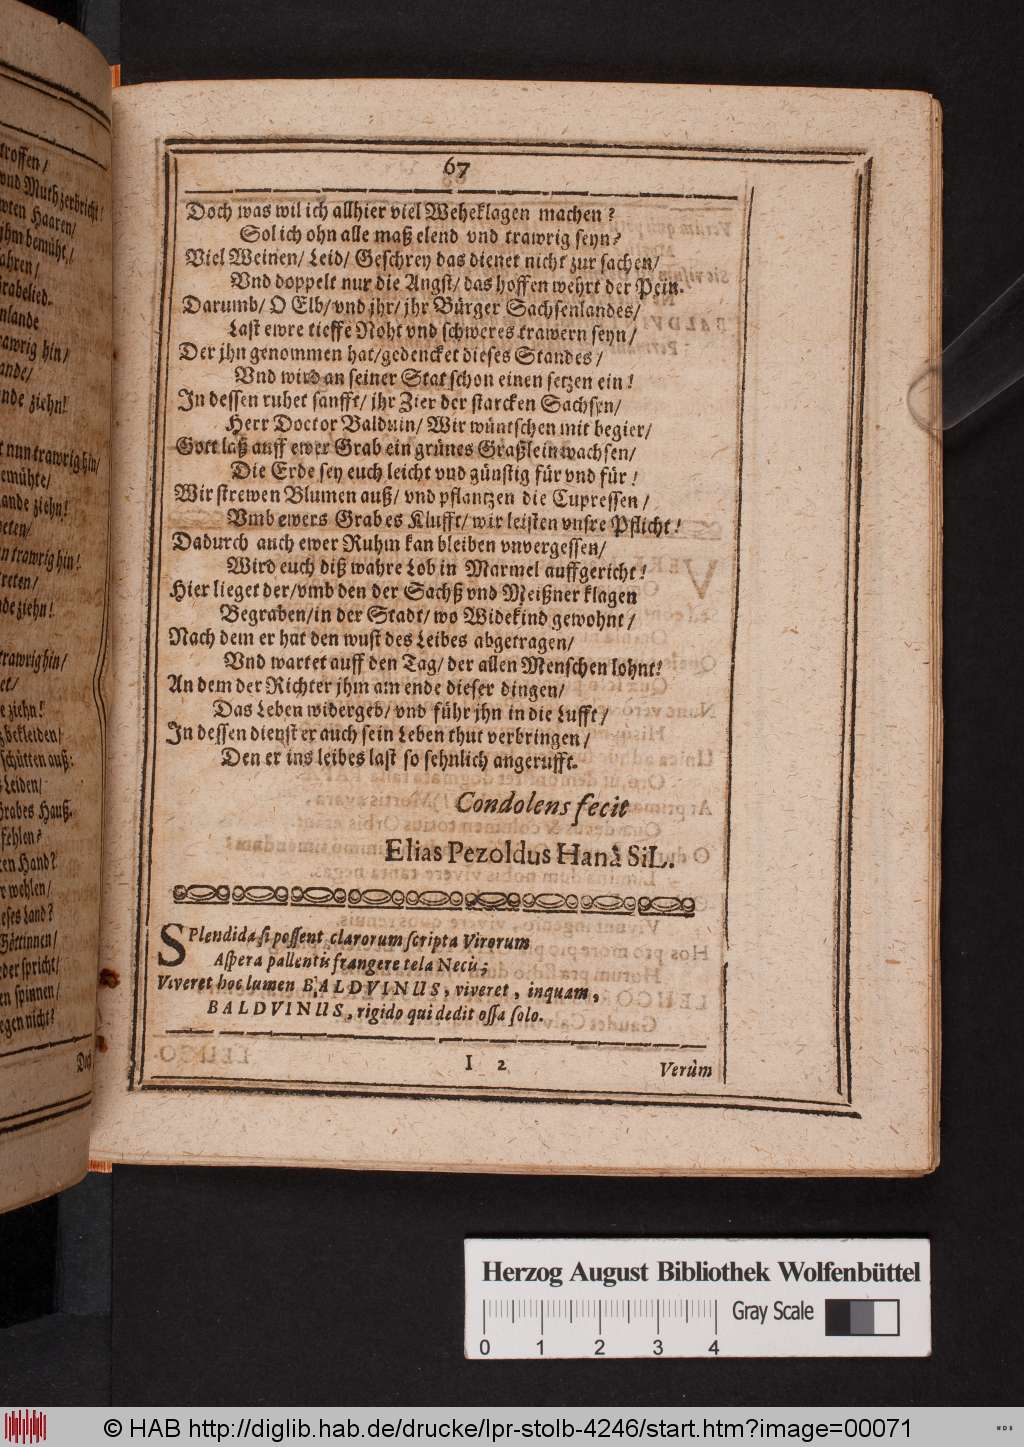 troffen/
vnd Muth zerbricht!
Haaren/
jhm bemüht/
ahren/
Grabelied.
enlande
rawrig hin/
ande/
nde ziehn!
nun trawrig hin/
emühte/
ande ziehn!
beten/
n trawrig hin!
reten/
de ziehn!
trawrig hin/
et/
e ziehn!
bekleiden/
schütten auß:
Leiden/
Grabes Hauß.
fehlen?
ten Hand?
r wehlen/
eses Land?
Göttinnen/
der spricht/
en spinnen/
egen nicht?
Doch
67
Doch was wil ich allhier viel Weheklagen machen?
Sol ich ohn alle maß elend vnd trawrig seyn?
Viel Weinen/ Leid/ Geschrey das dienet nicht zur sachen/
Vnd doppelt nur die Angst/ das hoffen wehrt der Pein.
Darumb/ O Elb/ vnd jhr/ jhr Bürger Sachsenlandes/
Last ewre tieffe Noht vnd schweres trawern seyn/
Der jhn genommen hat/ gedencket dieses Standes/
Vnd wird an seiner Stat schon einen setzen ein!
In dessen ruhet sanfft/ jhr Zier der starcken Sachsen/
Herr Doctor Balduin/ Wir wüntschen mit begier/
Gott laß auff ewer Grab ein grünes Graßlein wachsen/
Die Erde sey euch leicht vnd günstig für vnd für!
Wir strewen Blumen auß/ vnd pflantzen die Cupressen/
Vmb ewers Grabes Klufft/ wir leisten vnsre Pflicht!
Dadurch auch ewer Ruhm kan bleiben vnvergessen/
Wird euch diß wahre Lob in Marmel auffgericht!
Hier lieget der/ vmb den der Sachß vnd Meißner klagen
Begraben/ in der Stadt/ wo Widekind gewohnt/
Nach dem er hat den wust des Leibes abgetragen/
Vnd wartet auff den Tag/ der allen Menschen lohnt!
An dem der Richter jhm am ende dieser dingen/
Das Leben widergeb/ vnd führ jhn in die Lufft/
In dessen dienst er auch sein Leben thut verbringen/
Den er ins leibes last so sehnlich angerufft.
Condolens fecit
Elias Pezoldus Hanâ SiL.
SPlendida si possent clarorum scripta Virorum
Aspera pallentis frangere tela Necis;
Viveret hoc lumen BALDVINUS, viveret, inquam,
BALDVINUS, rigido qui dedit ossa solo.
I 2
Verùm
Herzog August Bibliothek Wolfenbüttel
Gray Scale
0 1 2 3 4
© HAB http://diglib.hab.de/drucke/lpr-stolb-4246/start.htm?image=00071